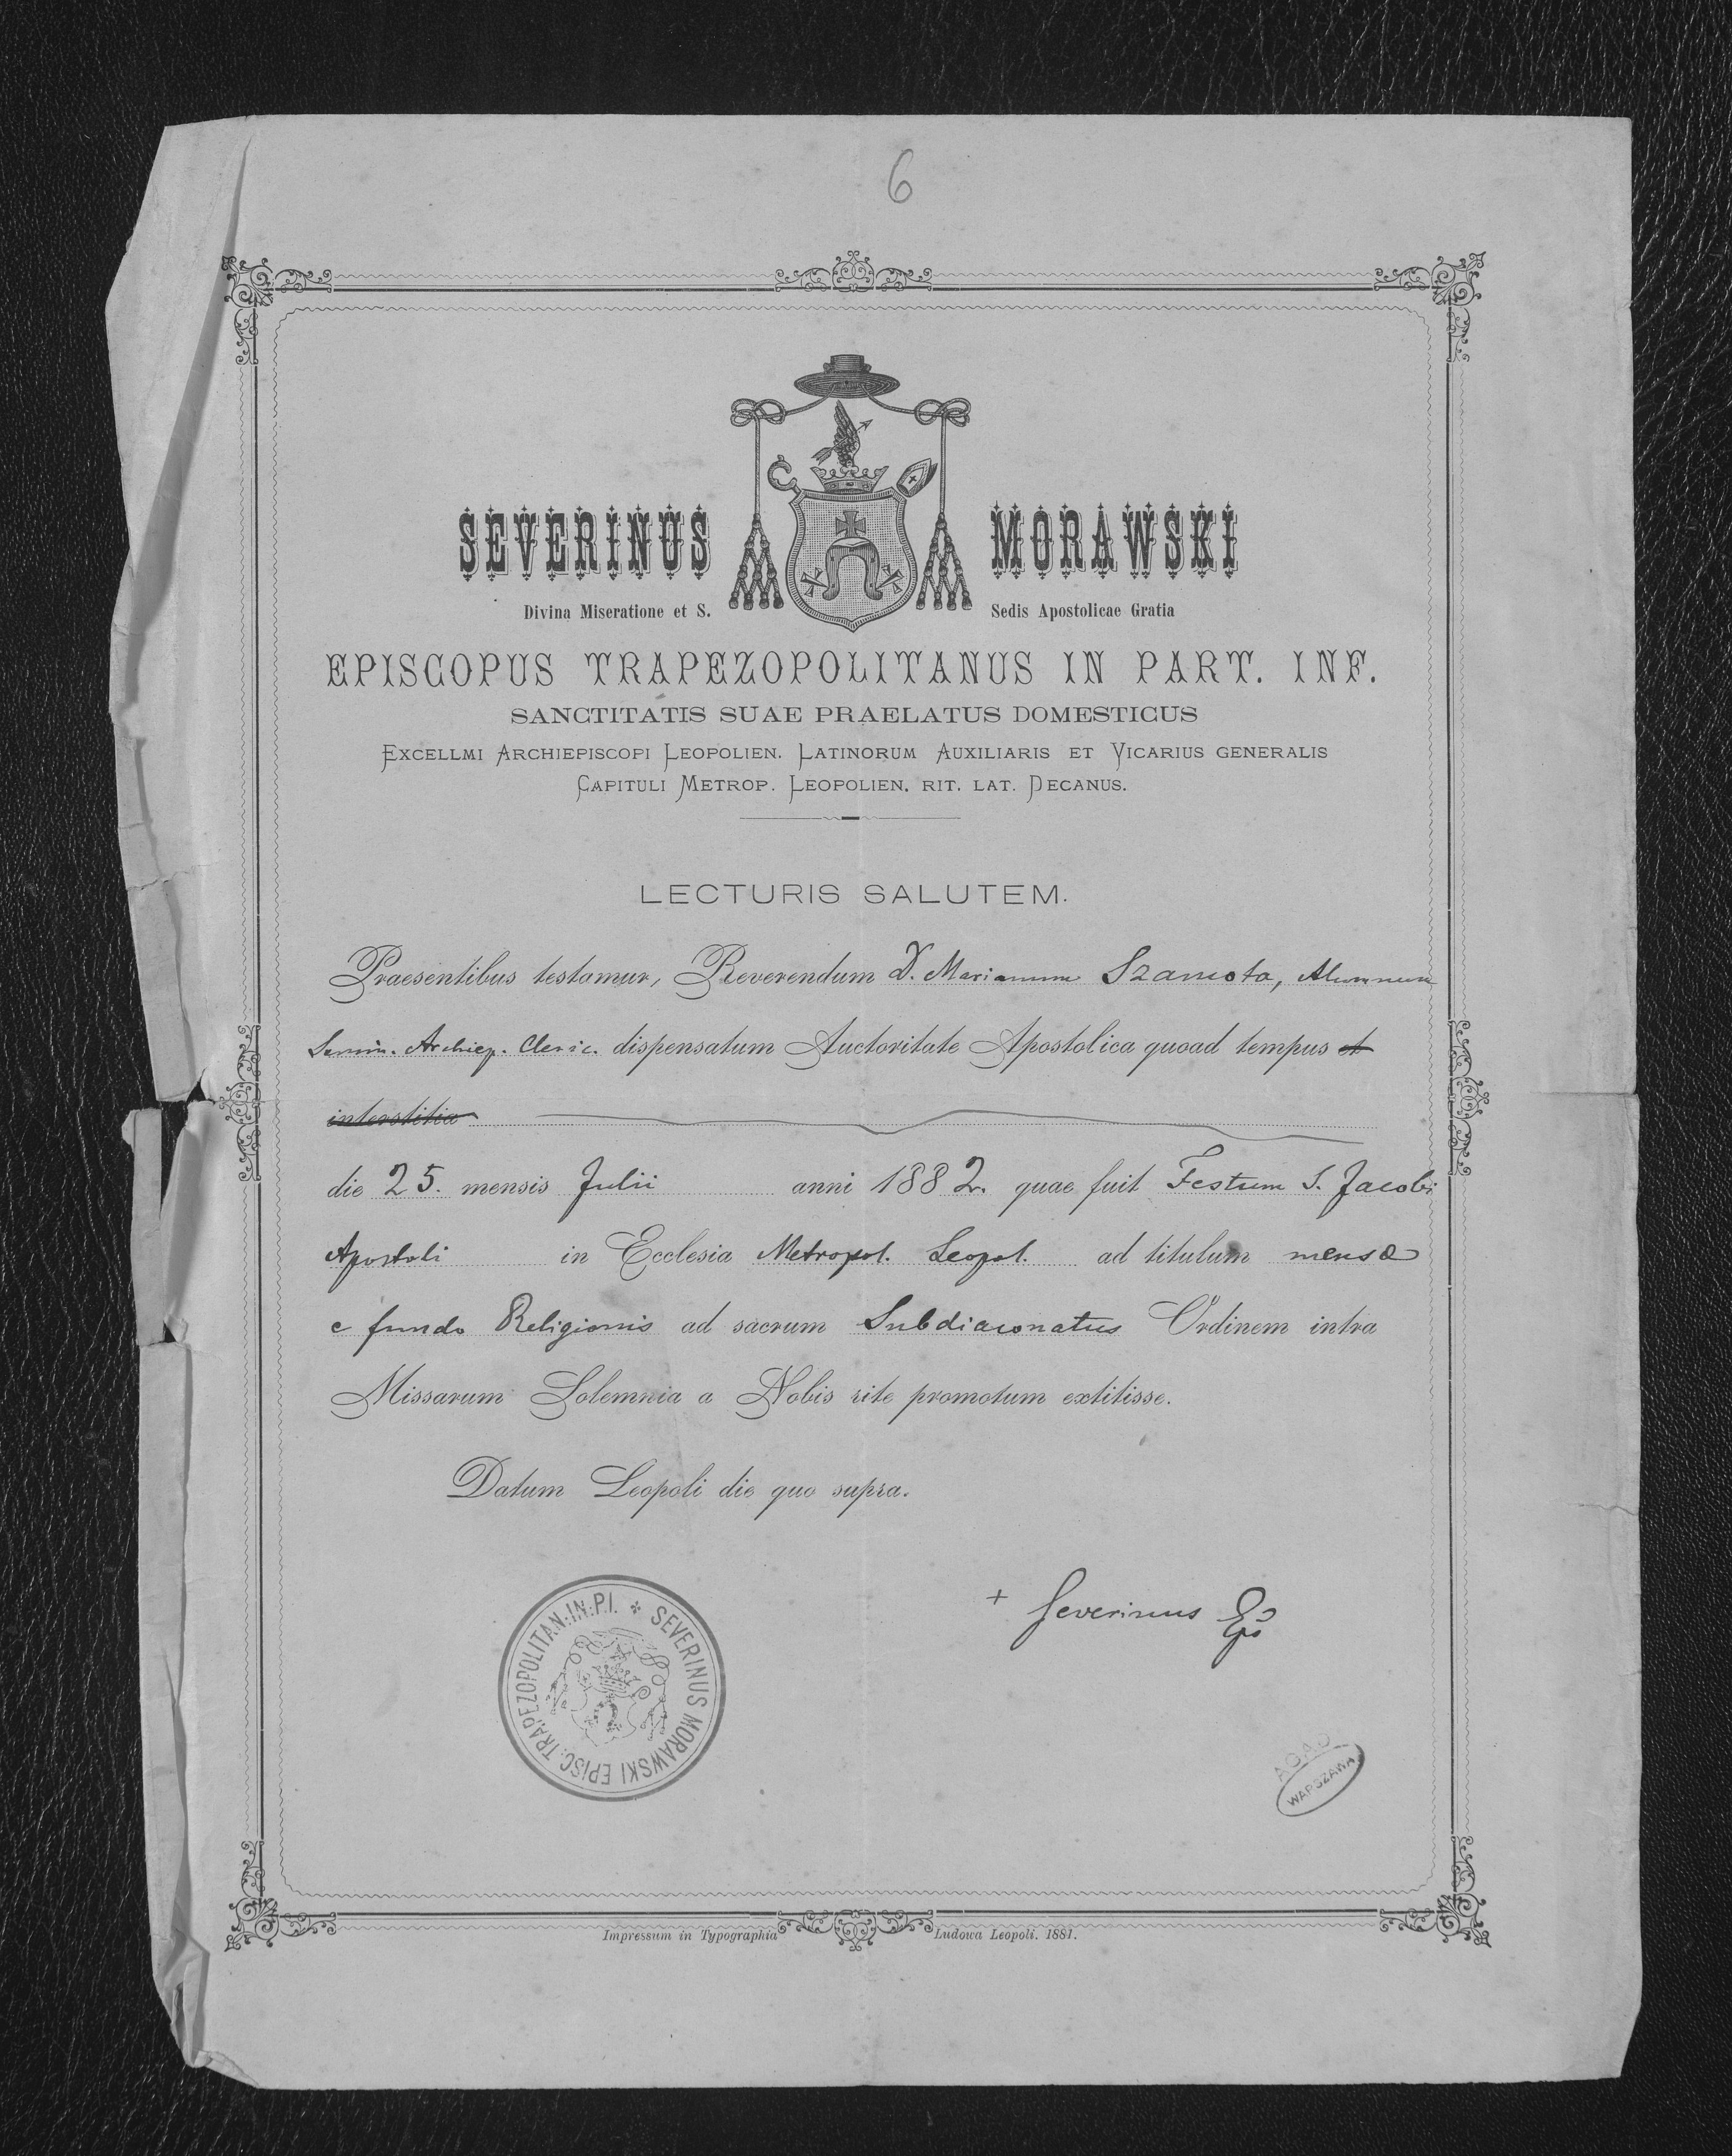 6
SEVERINUS MORAWSKI
Divina Miseratione et S. Sedis Apostolicae Gratia
EPISCOPUS TRAPEZOPOLITANUS IN PART. INF.
SANCTITATIS SUAE PRAELATUS DOMESTICUS
EXCELLMI ARCHIEPISCOPI LEOPOLIEN. LATINORUM AUXILIARIS ET VICARIUS GENERALIS
CAPITULI METROP. LEOPOLIEN. RIT. LAT. DECANUS.
LECTURIS SALUTEM.
Praesentibus testamur, Reverendum D. Marianum Szamota, Alumnum
Semin. Archiep. Cleric. dispensatum Auctoritate Apostolica quoad tempus et
interstitia
die 25. mensis Julii anni 1882. quae fuit Festum S. Jacobi
Apostoli in Ecclesia Metropol. Leopol. ad titulum mensæ
e fundo Religionis ad sacrum Subdiaconatus Ordinem intra
Missarum Solemnia a Nobis rite promotum extitisse.
Datum Leopoli die quo supra.
+ Severinus Epo
SEVERINUS MORAWSKI EPISC. TRAPEZOPOLITAN. IN. P. I. *
AGAD
WARSZAWA
Impressum in Typographia Ludowa Leopoli. 1881.